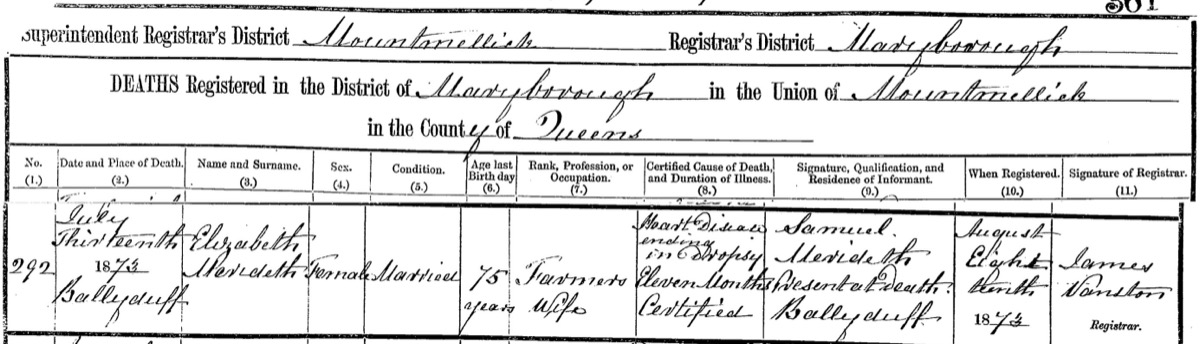 361
Superintendent Registrar's District Mountmellick Registrar's District Maryborough
DEATHS Registered in the District of Maryborough in the Union of Mountmellick
in the County of Queens
No. (1.) Date and Place of Death. (2.) Name and Surname. (3.) Sex. (4.) Condition. (5.) Age last Birth day (6.) Rank, Profession, or Occupation. (7.) Certified Cause of Death, and Duration of Illness. (8.) Signature, Qualification, and Residence of Informant. (9.) When Registered. (10.) Signature of Registrar. (11.)
292
July
Thirteenth
1873
Ballyduff
Elizabeth
Merideth
Female
Married
75
years
Farmers
Wife
Heart Disease
ending
in Dropsy
Eleven Months
Certified
Samuel
Merideth
Present at Death.
Ballyduff
August
Eight
teenth
1873
James
Vanston
Registrar.